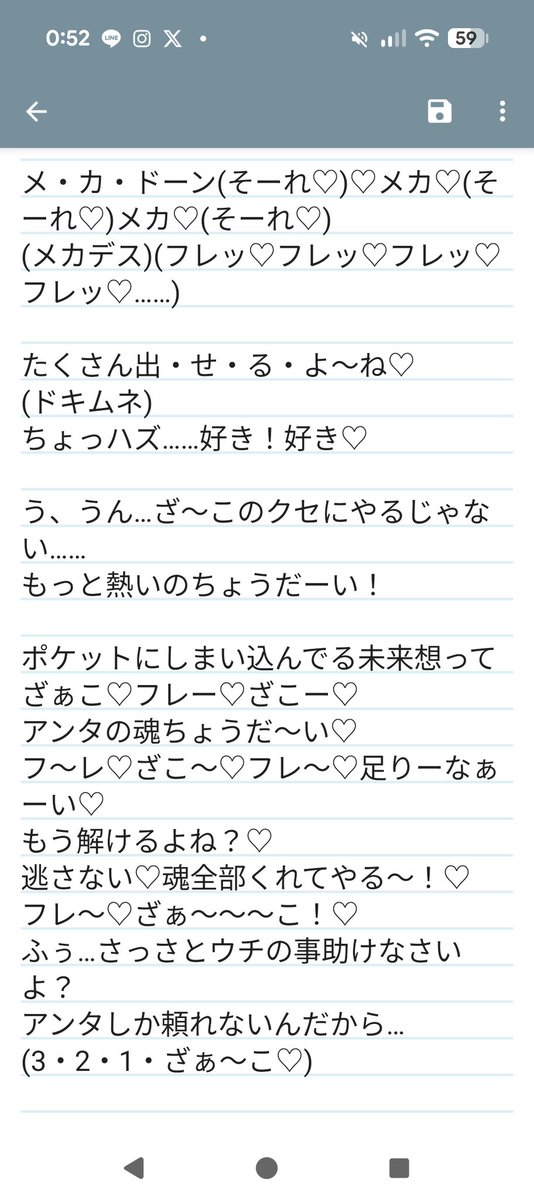 0:52
LINE
59
メ・カ・ドーン(そーれ♡)♡メカ♡(そ
ーれ♡)メカ♡(そーれ♡)
(メカデス)(フレッ♡フレッ♡フレッ♡
フレッ♡……)
たくさん出・せ・る・よ〜ね♡
(ドキムネ)
ちょっハズ……好き！好き♡
う、うん…ざ〜このクセにやるじゃな
い……
もっと熱いのちょうだーい！
ポケットにしまい込んでる未来想って
ざぁこ♡フレー♡ざこー♡
アンタの魂ちょうだ〜い♡
フ〜レ♡ざこ〜♡フレ〜♡足りーなぁ
ーい♡
もう解けるよね？♡
逃さない♡魂全部くれてやる〜！♡
フレ〜♡ざぁ〜〜〜こ！♡
ふぅ…さっさとウチの事助けなさい
よ？
アンタしか頼れないんだから…
(3・2・1・ざぁ〜こ♡)